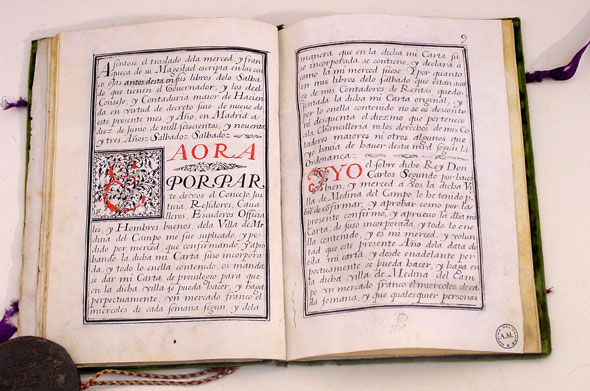 Asentose el traslado dela merced, y fran
queca de su Magestad escripta en las cin
co ojas antes desta en sus libros delo Salba
do que tienen el Governador, y los del
Consejo, y Contaduria maior de Hacien
da en virtud de decreto suio de nueve de
este presente mes, y Año, en Madrid a
diez de Junio de mill seiscientos, y noventa
y tres Años Salbador Salbado
E AORA
POR PAR
te de vos el Concejo, Jus
ticia Rejidores, Cava
lleros Escuderos Officia
les, y Hombres buenos, dela Villa de Me
dina del Campo me fue suplicado, y pe
dido por merced que confirmando y apro
bando la dicha mi Carta suso incorpora
da, y todo lo enella contenido, os manda
se dar mi Carta de privilegio para que
en la dicha villa se pueda hacer, y haga
perpetuamente, vn mercado franco el
miercoles de cada semana segun, y dela
9
manera que en la dicha mi Carta su
so incorporada se contiene, y declara o
como la mi merced fuese Y por quanto
en mis libros delo salbado que estan
de mis Contadores de Rentas quedo
la dicha mi Carta original, y
por lo enella contenido no se os desconto
ni desquenta el diezmo que pertenece
la Chancilleria ni los derechos de mis Co
tadores maiores ni otros algunos que
yo havia de haver desta mrd segun la
Ordenança
E YO el sobre dicho Rey Don
Carlos Segundo por hacer
bien, y merced a Vos la dicha Vi
lla de Medina del Campo lo he tenido p
bien de confirmar, y aprobar como por la
presente confirmo, y apruevo la dha mi
Carta, de suso incorporada, y todo lo ene
lla contenido, y es mi merced, y volun
tad que este presente Año dela data de
esta mi carta, y desde enadelante per
petuamente se pueda hacer, y haga en
la dicha villa de Medina del Cam
po vn mercado franco el miercoles de ca
da semana, y que qualesquier personas
A.M.